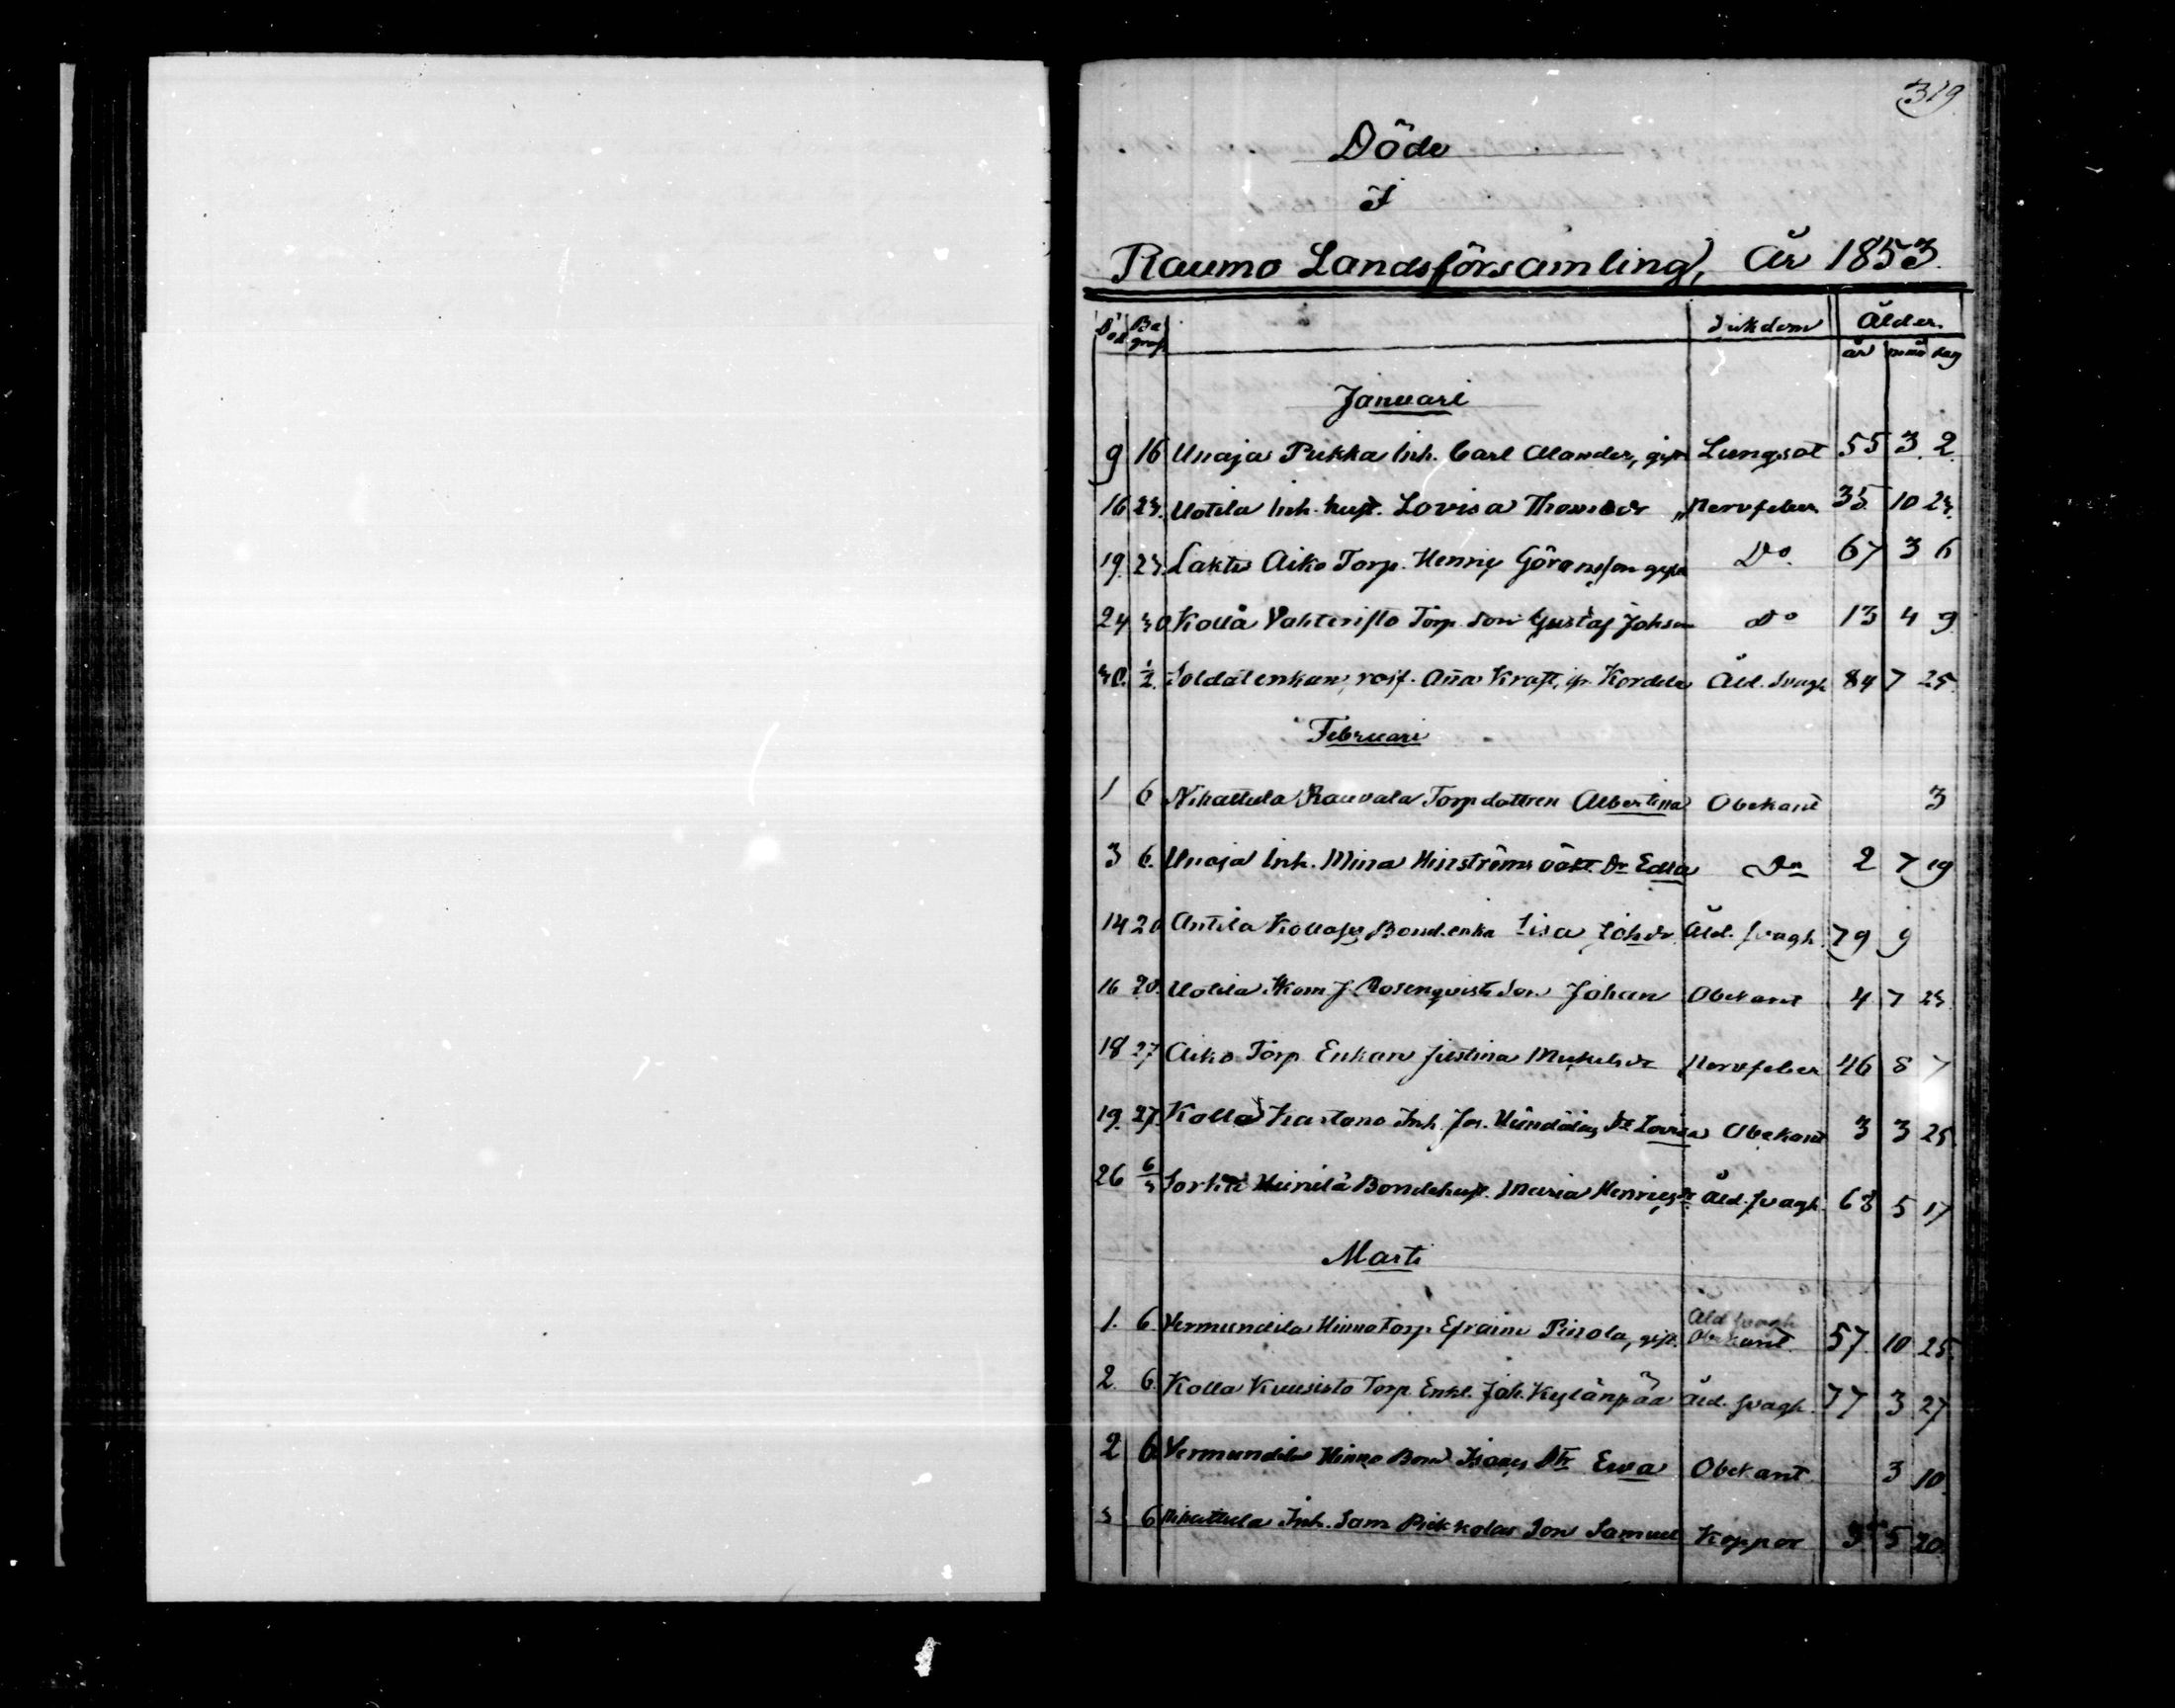 319
Döde
I
Raumo Landsförsamling, År 1853.
Död Begraf. Sjukdom Ålder.
år mån dag
Januari
9 16 Unaja Pukka Inh. Carl Alander, gift Lungsot 55 3 2
16 23. Uotila Inh. hust. Lovisa Thomsdr Nervfeber 35 10 23.
19. 23. Lakts Aiko Torp. Henric Göransson gift Do. 67 3 6
24 30 Kolla Vahteristo Torp. Son Gustaf Johson Do 13 4 9
30. 1/2. Soldatenkan, rotf. Aña Kraft, ifr. Kordela Åld. svagh 84 7 25.
Februari
1 6 Nihattula Rauvala Torp dottren Albertina Obekant 3
3 6. Unaja Inh. Mina Hinströms oäkt. Dr Edla Do 2 7 19
14 20 Antila Kollas Bond.enka Lisa Johdr. Åld. svagh. 79 9
16 20. Uotila Skom J. Rosenqvists Son Johan Obekant 4 7 23
18 27 Aiko Torp. Enkan Justina Michelsdr Nervfeber 46 8 7
19. 27. Kolla Kastono Inh. Jos. Dr Lovisa Obekant 3 3 25.
26 6/3 Sorkka Heinilä Bondehust. Maria Henricsdr Åld. svagh. 63 5 17
Marti
Åld svagh
1. 6. Vermundila Hinno Torp. Efraim Pirola, gift. Obekant. 57. 10 25.
2. 6. Kolla Kuusisto Torp. Enkl. Joh. Kylänpää Åld. svagh. 77 3 27
2 6 Vermundila Hinno Bond Isaacs Dtr Ewa Obekant 3 10.
3 6 Nihattula Inh. Sam Pickkolas Son Samuel Koppor 5 20.